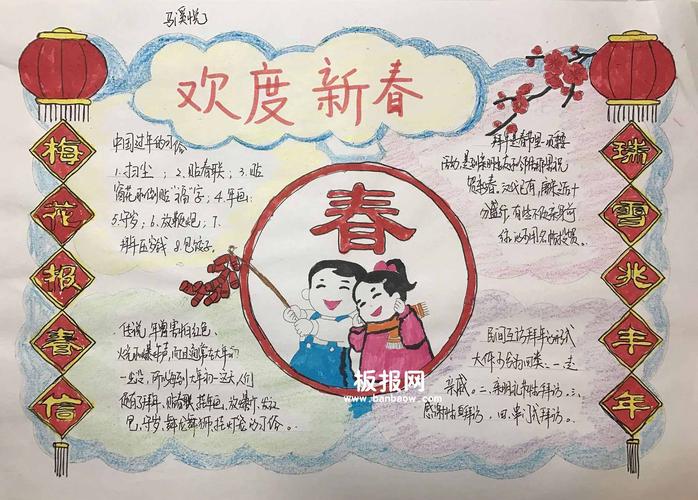 马溪悦
欢度新春
梅花报春信
瑞雪兆丰年
中国过年的习俗
1.扫尘；2.贴春联；3.贴
窗花和倒贴"福"字；4.年画；
5.守岁；6.放鞭炮；7.
拜年压岁钱 8.包饺子。
拜年是春节里
活动，是到亲朋好友家
贺新春，
分盛行，有些不便亲身前
春
传说，年兽害怕红色、
火光和爆炸声，而且通常在大年初
一出没，所以每到大年初一这天，人们
便有了拜年、贴春联、挂年画、放爆竹、发红
包、守岁、舞龙舞狮、挂灯笼的习俗。
民间互访拜年的形式
大体可分为四类：一走
亲戚。二、礼节性拜访。三、
感谢性拜访，四、串门式拜访。
板报网
www.banbaow.com